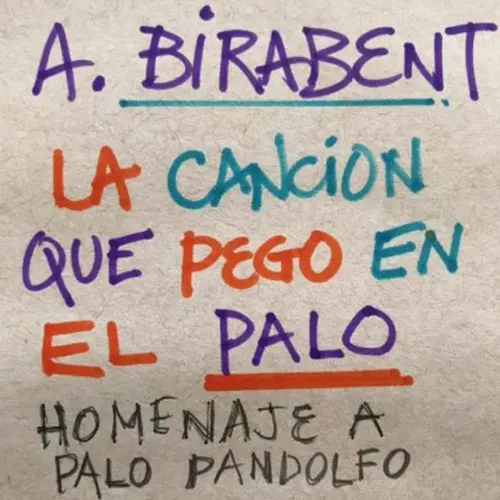 A. BIRABENT
LA CANCION
QUE PEGO EN
EL PALO
HOMENAJE A
PALO PANDOLFO